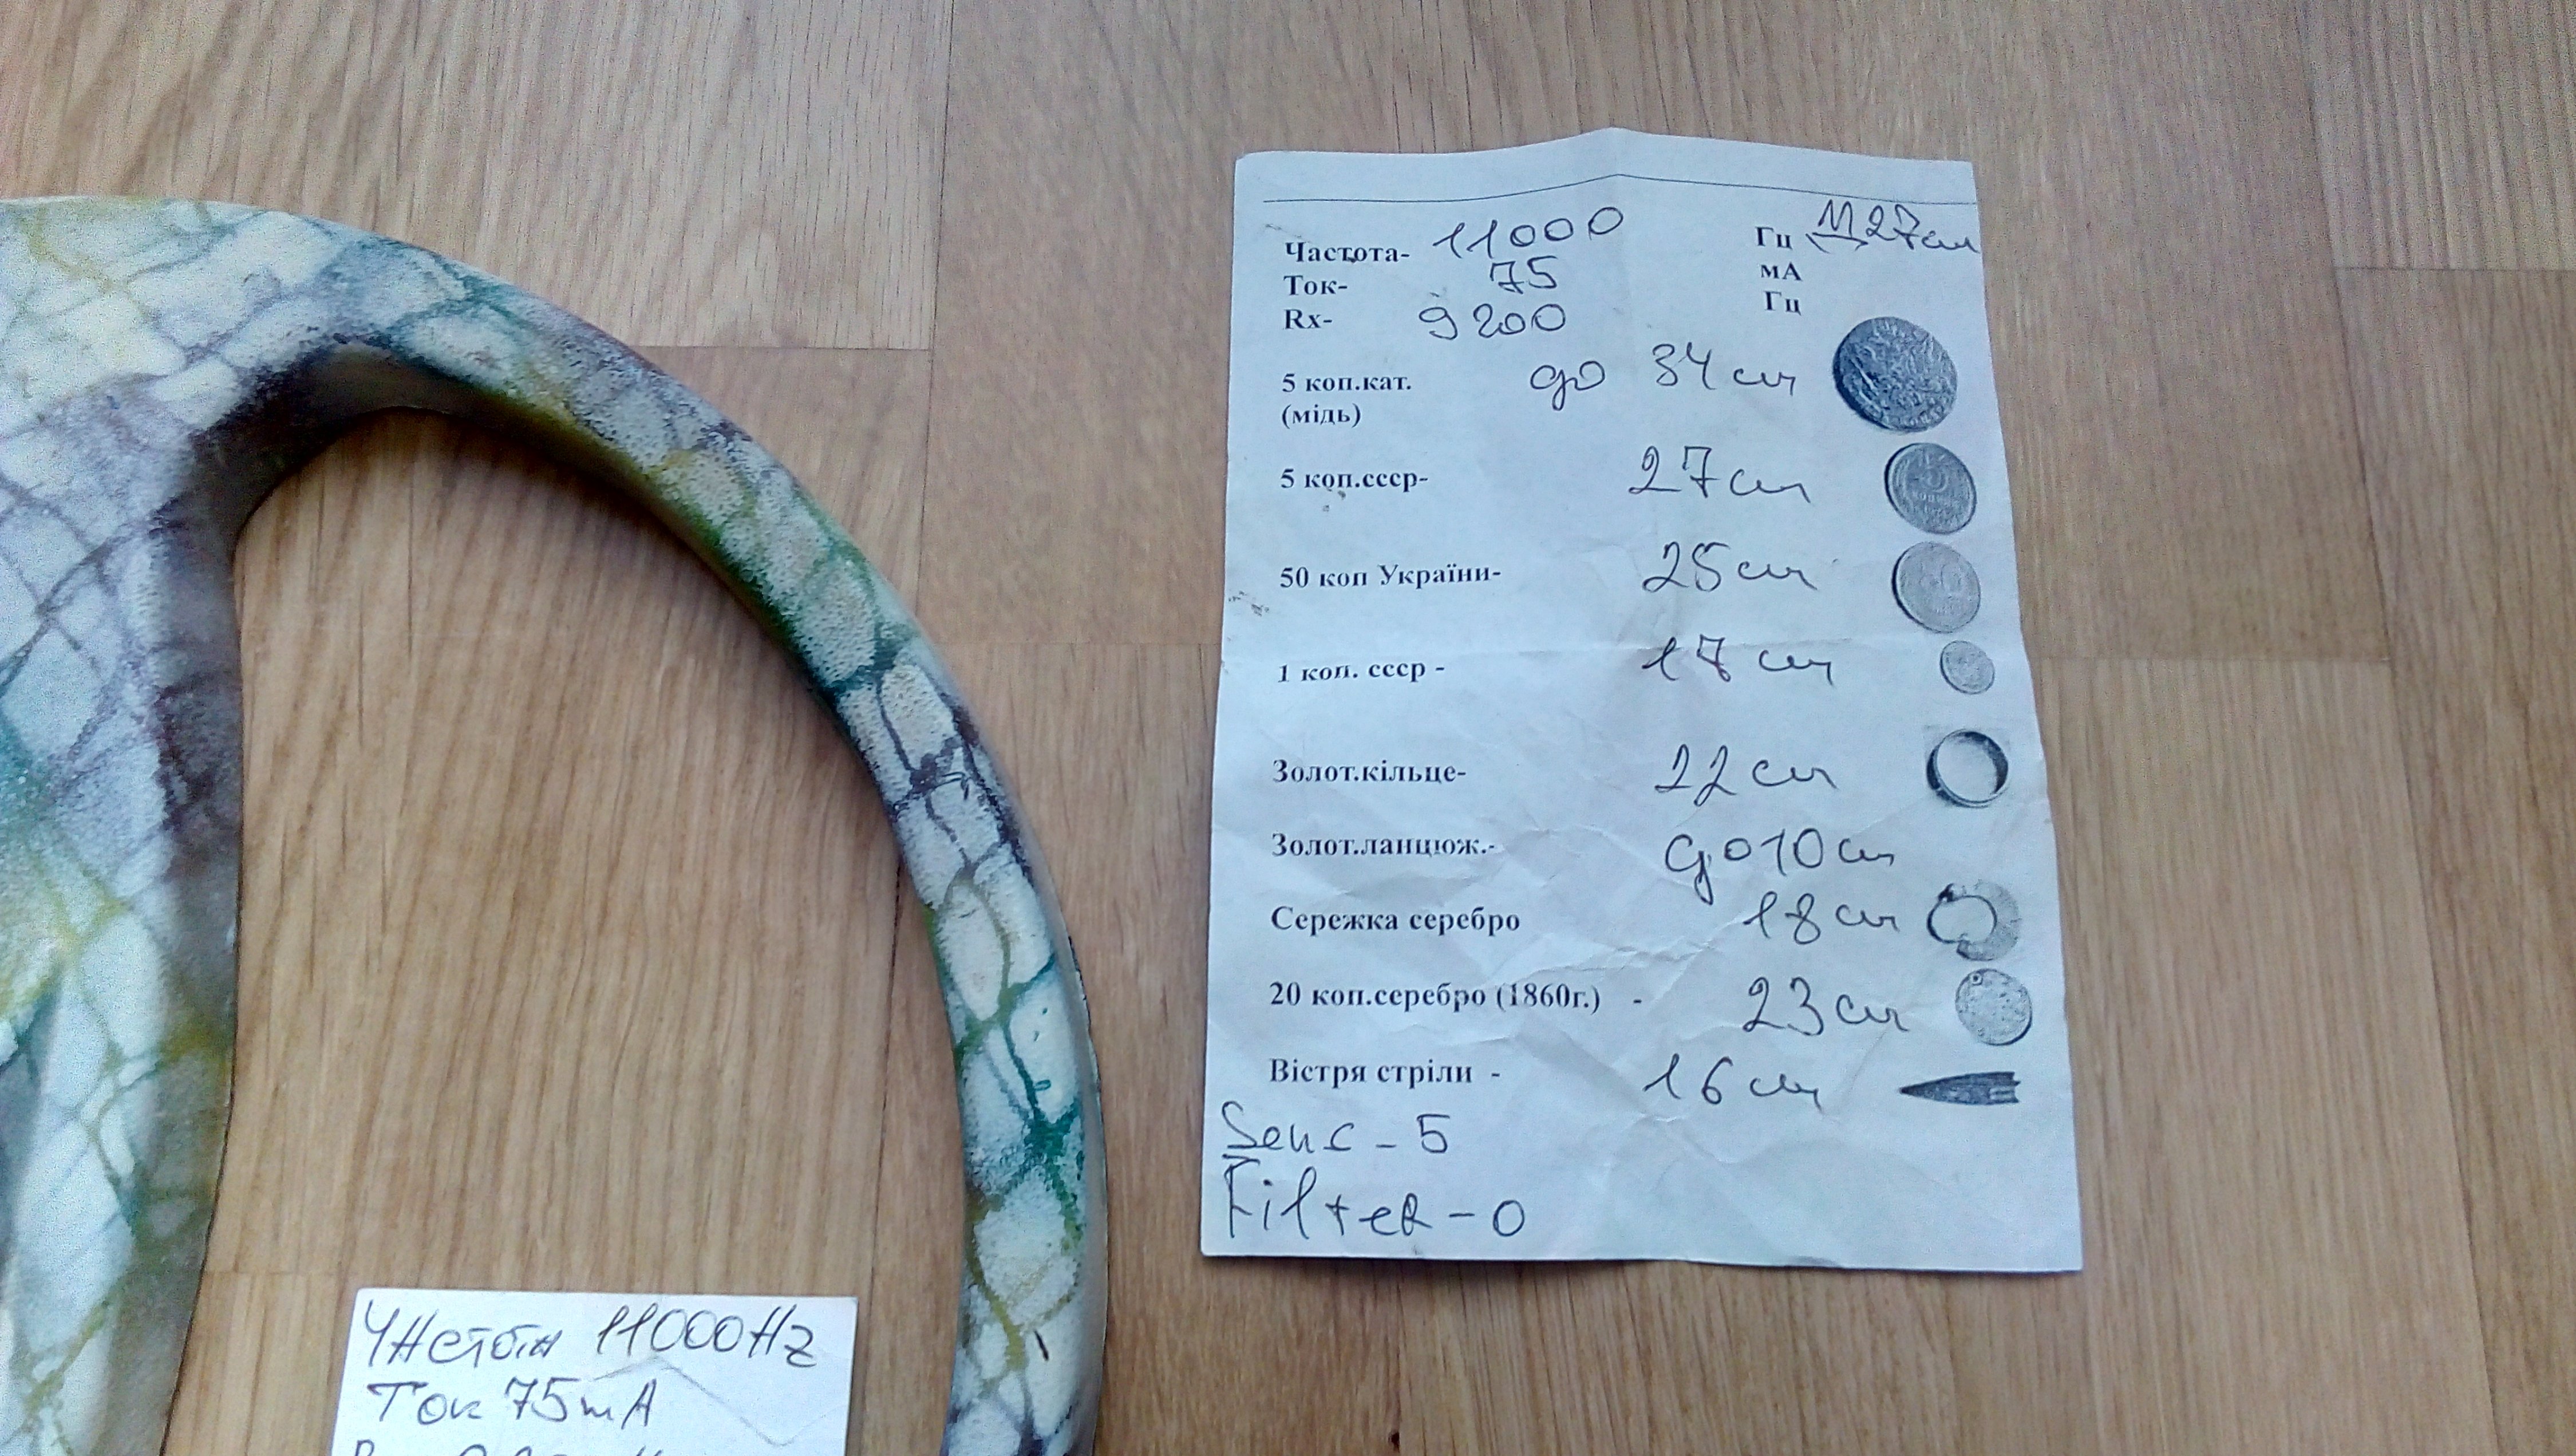 Частота- 11000 Гц 27см
Ток- 75 мА
Rx- 9200 Гц
5 коп.кат. до 34 см
(мідь)
5 коп.ссср- 27см
50 коп України- 25см
1 коп. ссср - 17 см
Золот.кільце- 22 см
Золот.ланцюж.- до 10 см
Сережка серебро 18 см
20 коп.серебро (1860г.) - 23 см
Вістря стріли - 16 см
Sens - 5
Filter - 0
Частота 11000Hz
Ток 75mA